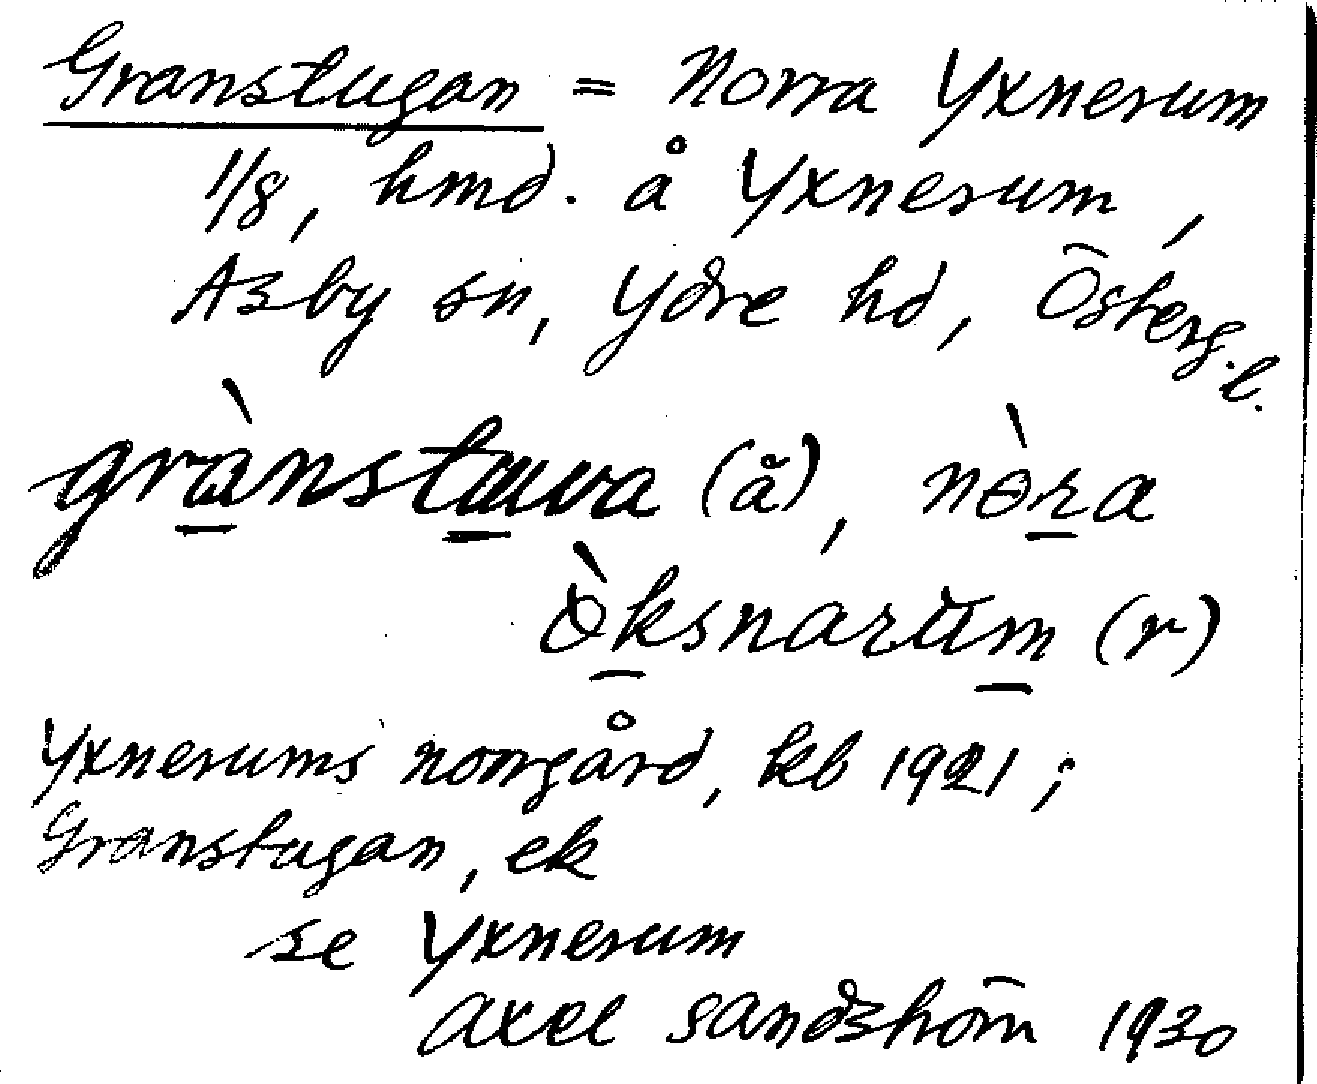 Granstugan = Norra Yxnerum
1/8, hmd. å Yxnerum,
Asby sn, Ydre hd, Österg.l.
grànstuva (å), nòra
òksnarum (r)
Yxnerums norrgård, kb 1921;
Granstugan, ek
se Yxnerum
Axel Sandström 1930